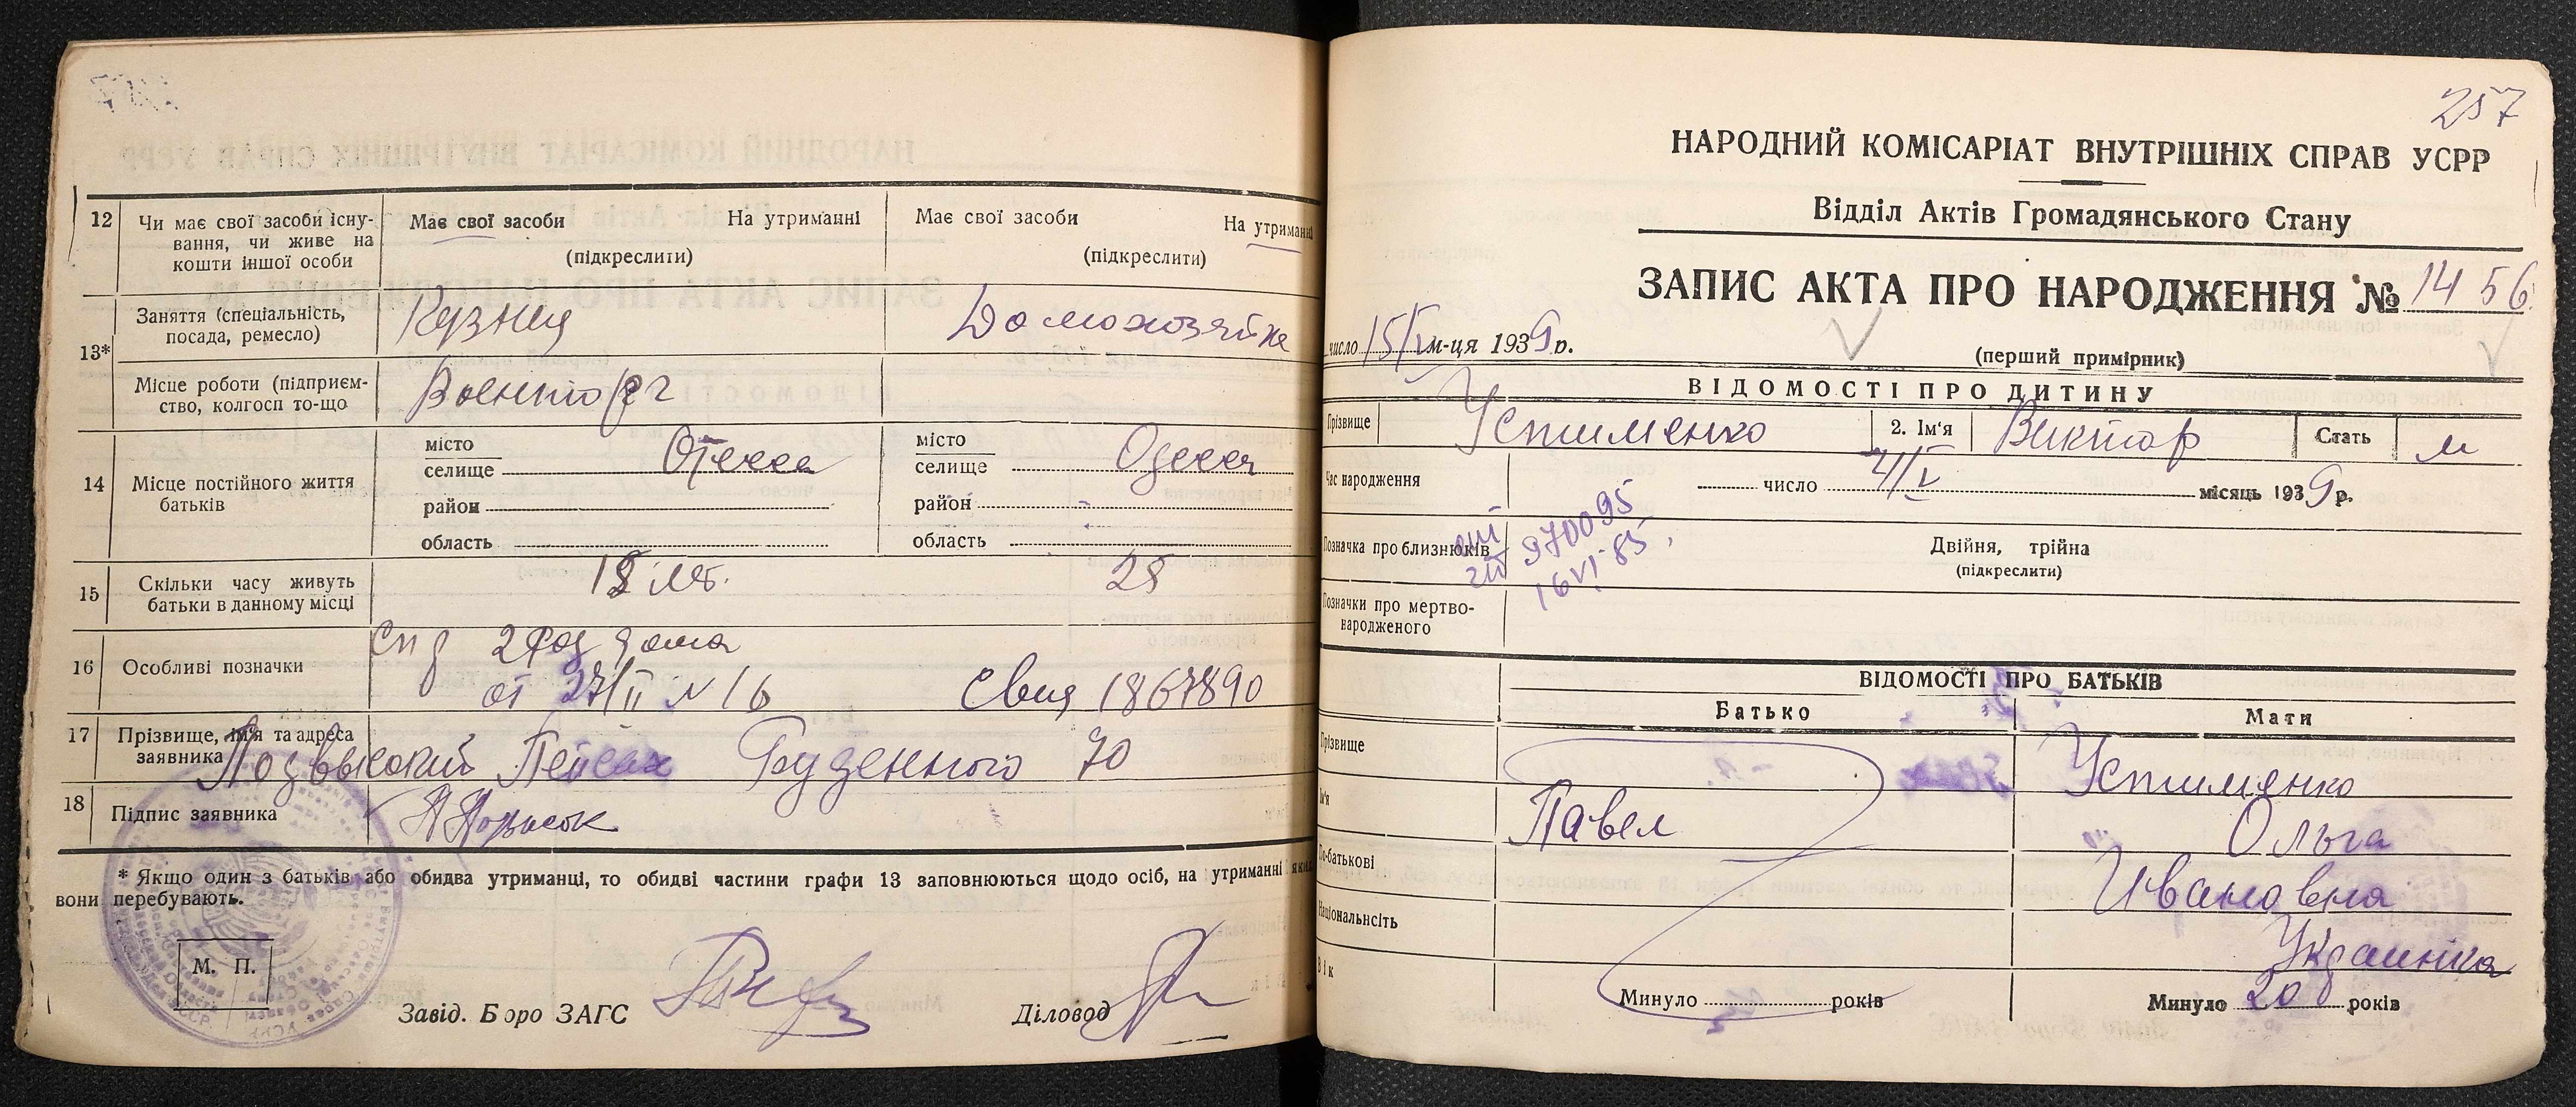 12
Чи має свої засоби існу-
вання, чи живе на
кошти іншої особи
Має свої засоби На утриманні
(підкреслити)
Має свої засоби На утриманні
(підкреслити)
13*
Заняття (спеціальність,
посада, ремесло)
Кузнец
Домохозяйка
Місце роботи (підприєм-
ство, колгосп то-що
Военторг
14
Місце постійного життя
батьків
місто
селище Одесса
район
область
місто
селище Одесса
район
область
15
Скільки часу живуть
батьки в данному місці
18 лет.
25
16
Особливі позначки
Спр 2 род дома
от 27/II № 16 Свид 1867890
17
Прізвище, ім'я та адреса
заявника
Подвысокий Пейсах Буденного 70
18
Підпис заявника
* Якщо один з батьків або обидва утриманці, то обидві частини графи 13 заповнюються щодо осіб, на утриманні яких
вони перебувають.
М. П.
Завід. Бюро ЗАГС
Діловод
257
НАРОДНИЙ КОМІСАРІАТ ВНУТРІШНІХ СПРАВ УСРР
Відділ Актів Громадянського Стану
ЗАПИС АКТА ПРО НАРОДЖЕННЯ № 1456
число 15/V м-ця 1939 р.
(перший примірник)
ВІДОМОСТІ ПРО ДИТИНУ
Прізвище Устименко 2. Ім'я Виктор Стать м
Час народження число 4/V місяць 1939 р.
Позначка про близнюків
970095
16 VI-85
Двійня, трійна
(підкреслити)
Позначки про мертво-
народженого
ВІДОМОСТІ ПРО БАТЬКІВ
Батько Мати
Прізвище Устименко
Ім'я Павел Ольга
По-батькові Ивановна
Національність Украинка
Вік Минуло років Минуло 20 років